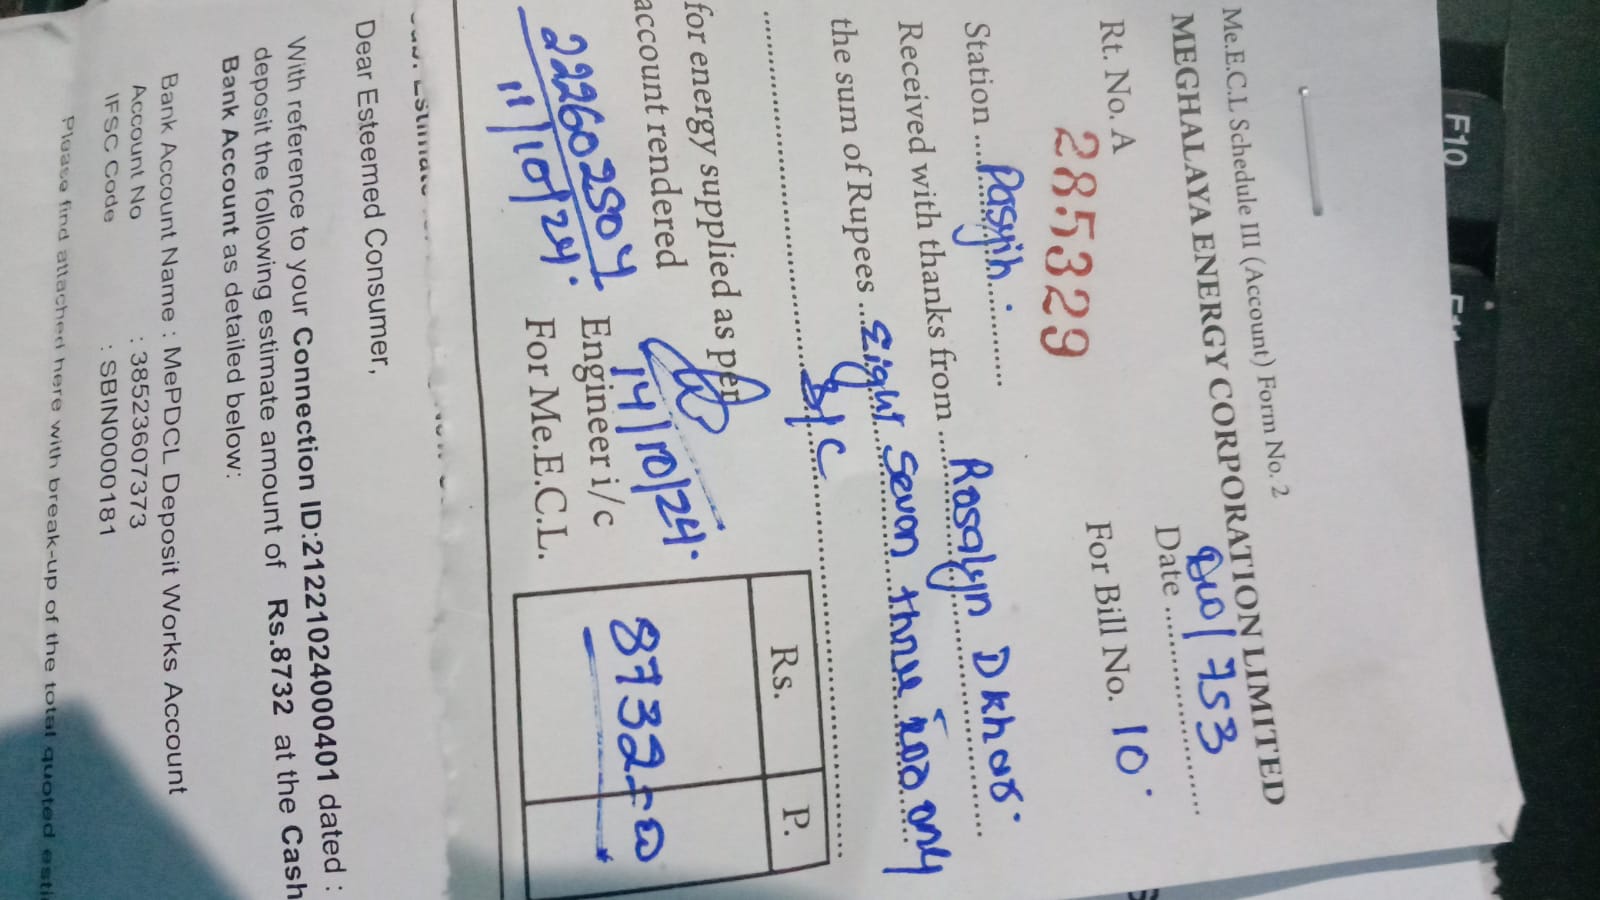 F10
Me.E.C.L Schedule III (Account) Form No. 2
MEGHALAYA ENERGY CORPORATION LIMITED
Rt. No. A
285329
Date ........ 753
For Bill No. 10.
Station .... Pasyih ..........
Received with thanks from ...... Rosalyn Dkhar.
the sum of Rupees ... Eight Seven three two only
S/C
for energy supplied as per
account rendered
222602504
11/10/24.
14/10/24.
Engineer i/c
For Me.E.C.L.
Rs. P.
8732-00
Dear Esteemed Consumer,
With reference to your Connection ID:21221024000401 dated :
deposit the following estimate amount of Rs.8732 at the Cash
Bank Account as detailed below:
Bank Account Name : MePDCL Deposit Works Account
Account No : 38523607373
IFSC Code : SBIN0000181
Please find attached here with break-up of the total quoted